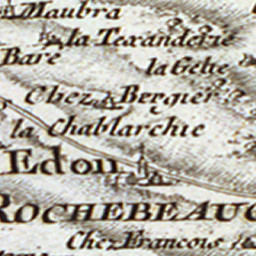 Maubra
la Texanderie
Baré
la Gelie
Chez Bergier
la Chablarchie
Edon
ROCHEBEAUC
Chez Francois